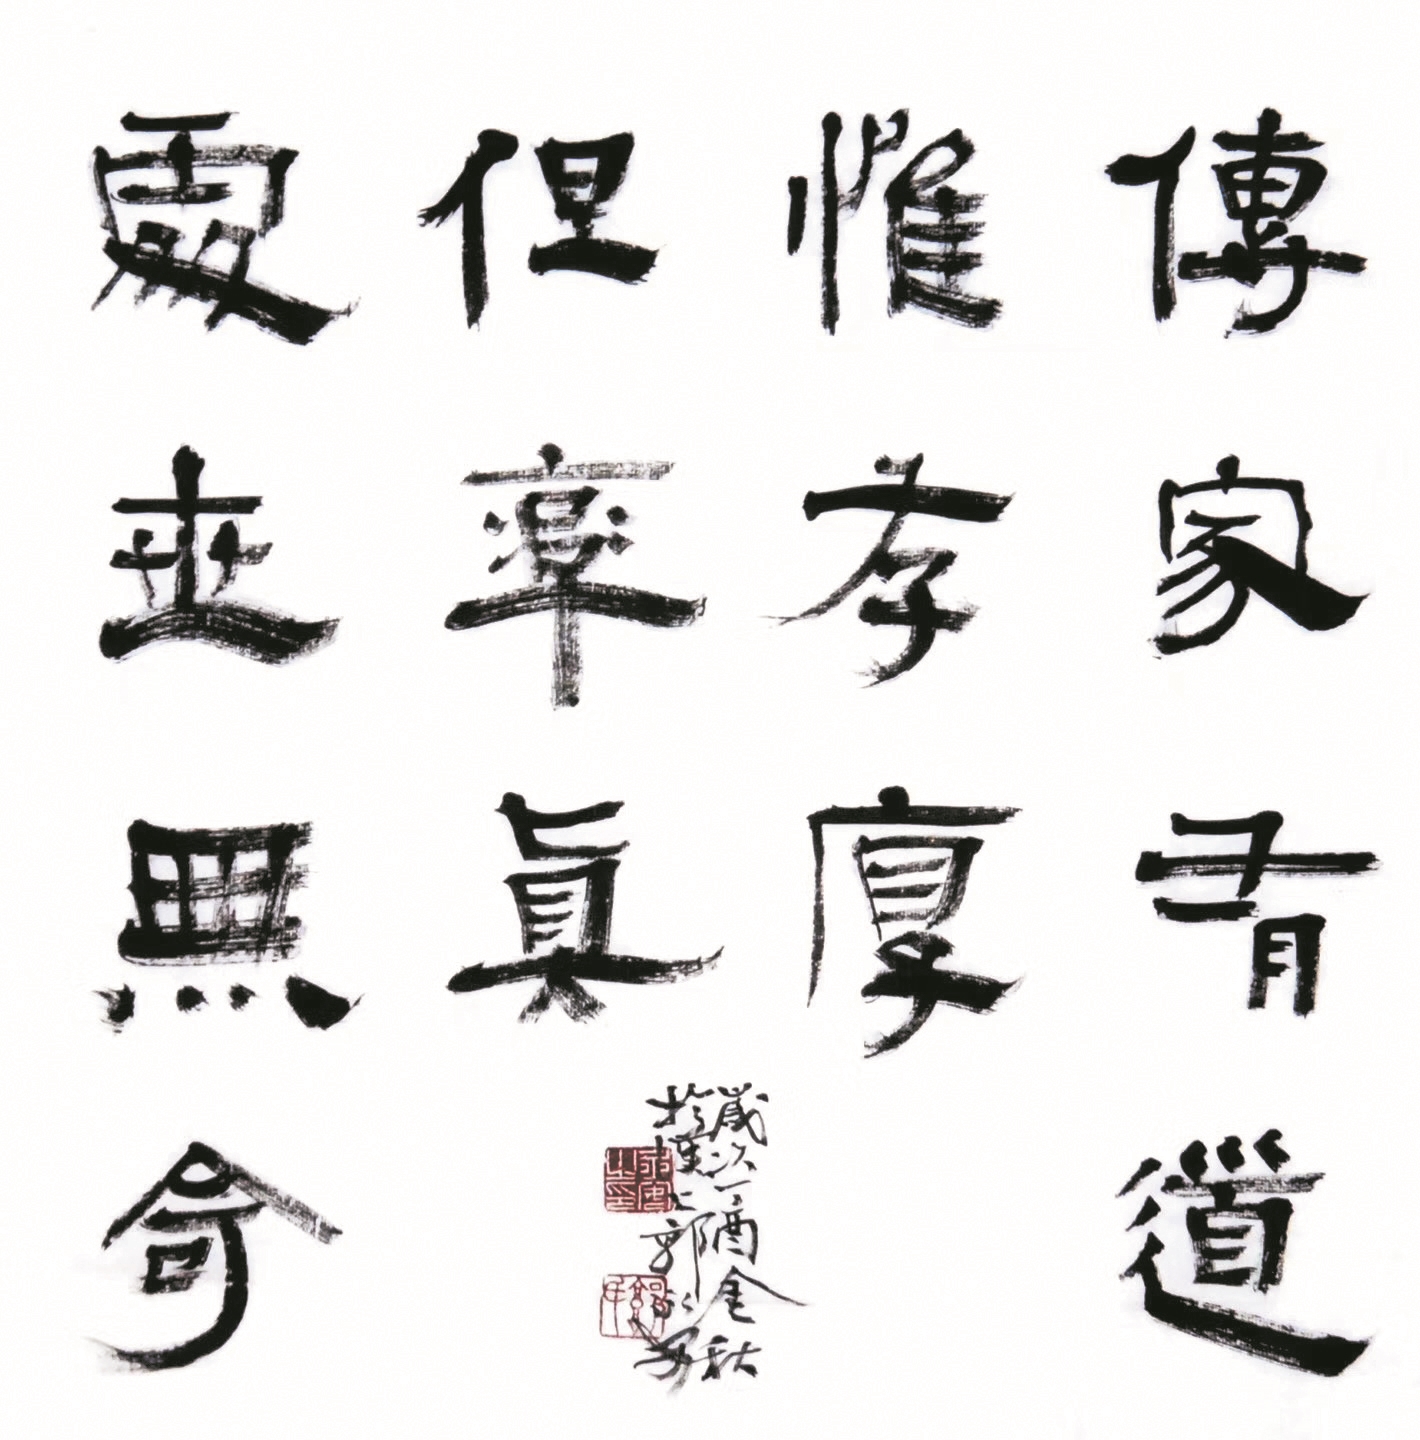 傳家有道
惟存厚
處世無奇
但率真
歲次丁酉金秋
於
郭